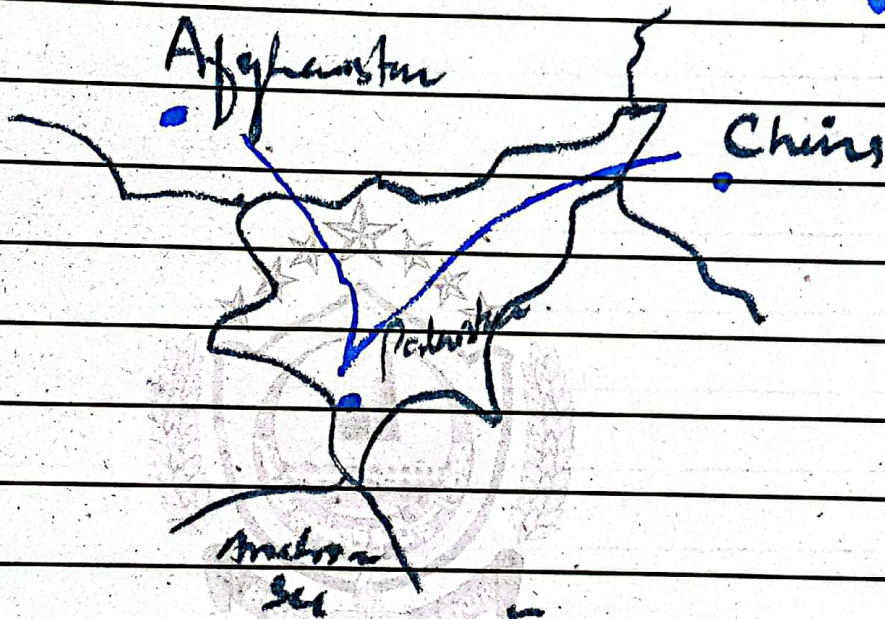 Afghanistan
China
Pakistan
Arabian
Sea